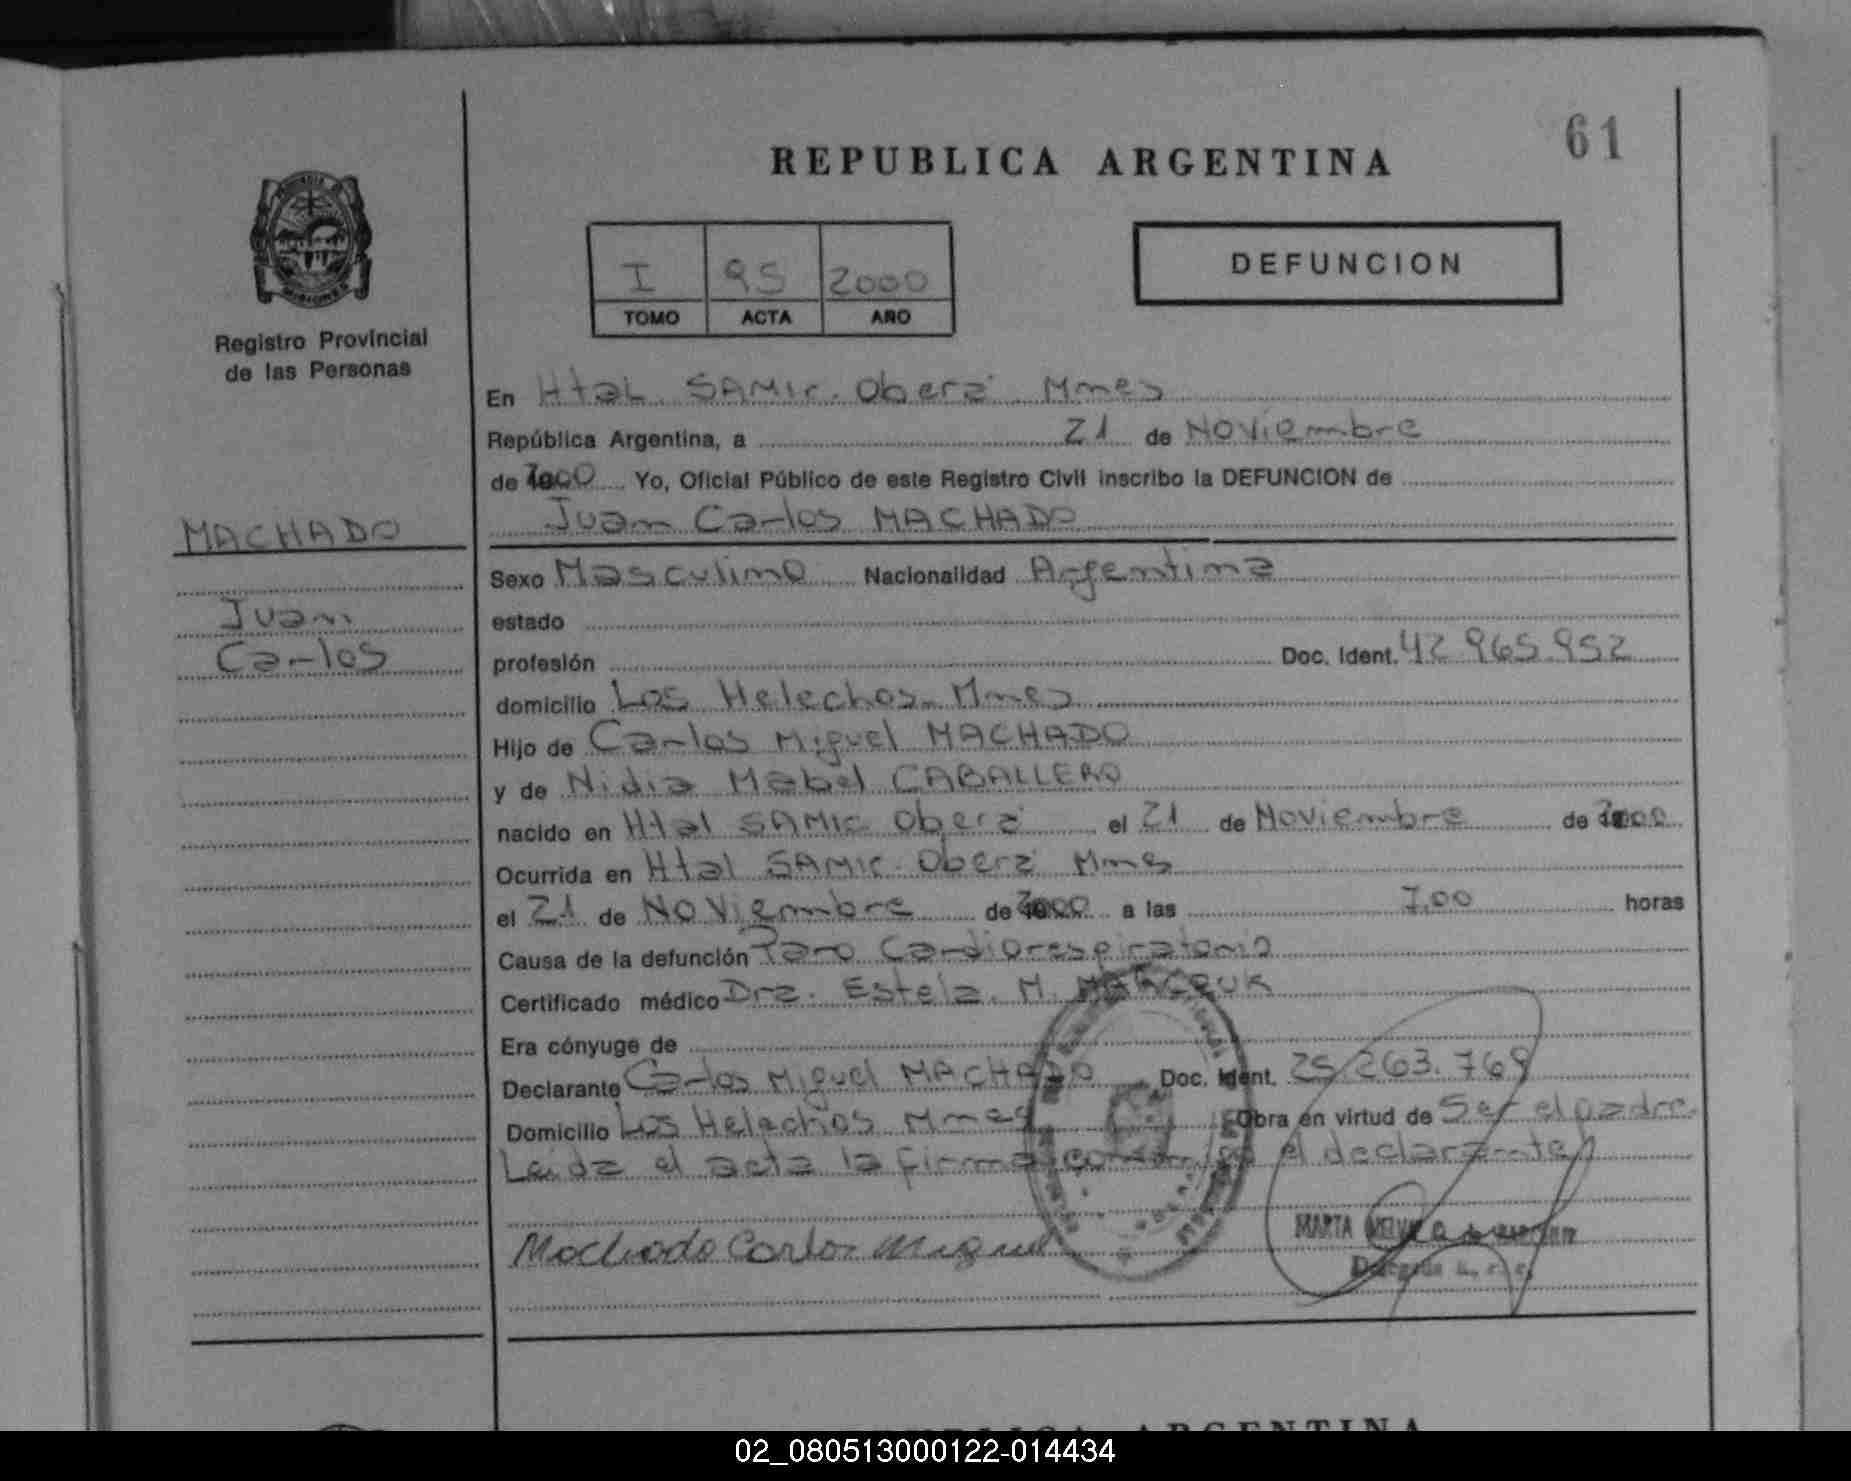 61
REPUBLICA ARGENTINA
PROVINCIA DE
MISIONES
Registro Provincial
de las Personas
I 95 2000
TOMO ACTA AÑO
DEFUNCION
En Htal. SAMIC. Oberá Mnes
República Argentina, a 21 de Noviembre
de 2000 Yo, Oficial Público de este Registro Civil inscribo la DEFUNCION de
Juan Carlos MACHADO
MACHADO
Juan
Carlos
Sexo Masculino Nacionalidad Argentina
estado
profesión Doc. Ident. 42.965.952
domicilio Los Helechos Mnes
Hijo de Carlos Miguel MACHADO
y de Nidia Mabel CABALLERO
nacido en Htal SAMIC Oberá el 21 de Noviembre de 2000
Ocurrida en Htal SAMIC. Oberá Mnes
el 21 de Noviembre de 2000 a las 7.00 horas
Causa de la defunción Paro Cardiorespiratorio
Certificado médico Dra. Estela. M.
Era cónyuge de
Declarante Carlos Miguel MACHADO Doc. Ident. 25.263.769
Domicilio Los Helechos Mnes Obra en virtud de Ser el padre.
Leída el acta la firma conmigo el declarante
Machado Carlos Miguel
MARTA
REPUBLICA ARGENTINA
02_080513000122-014434